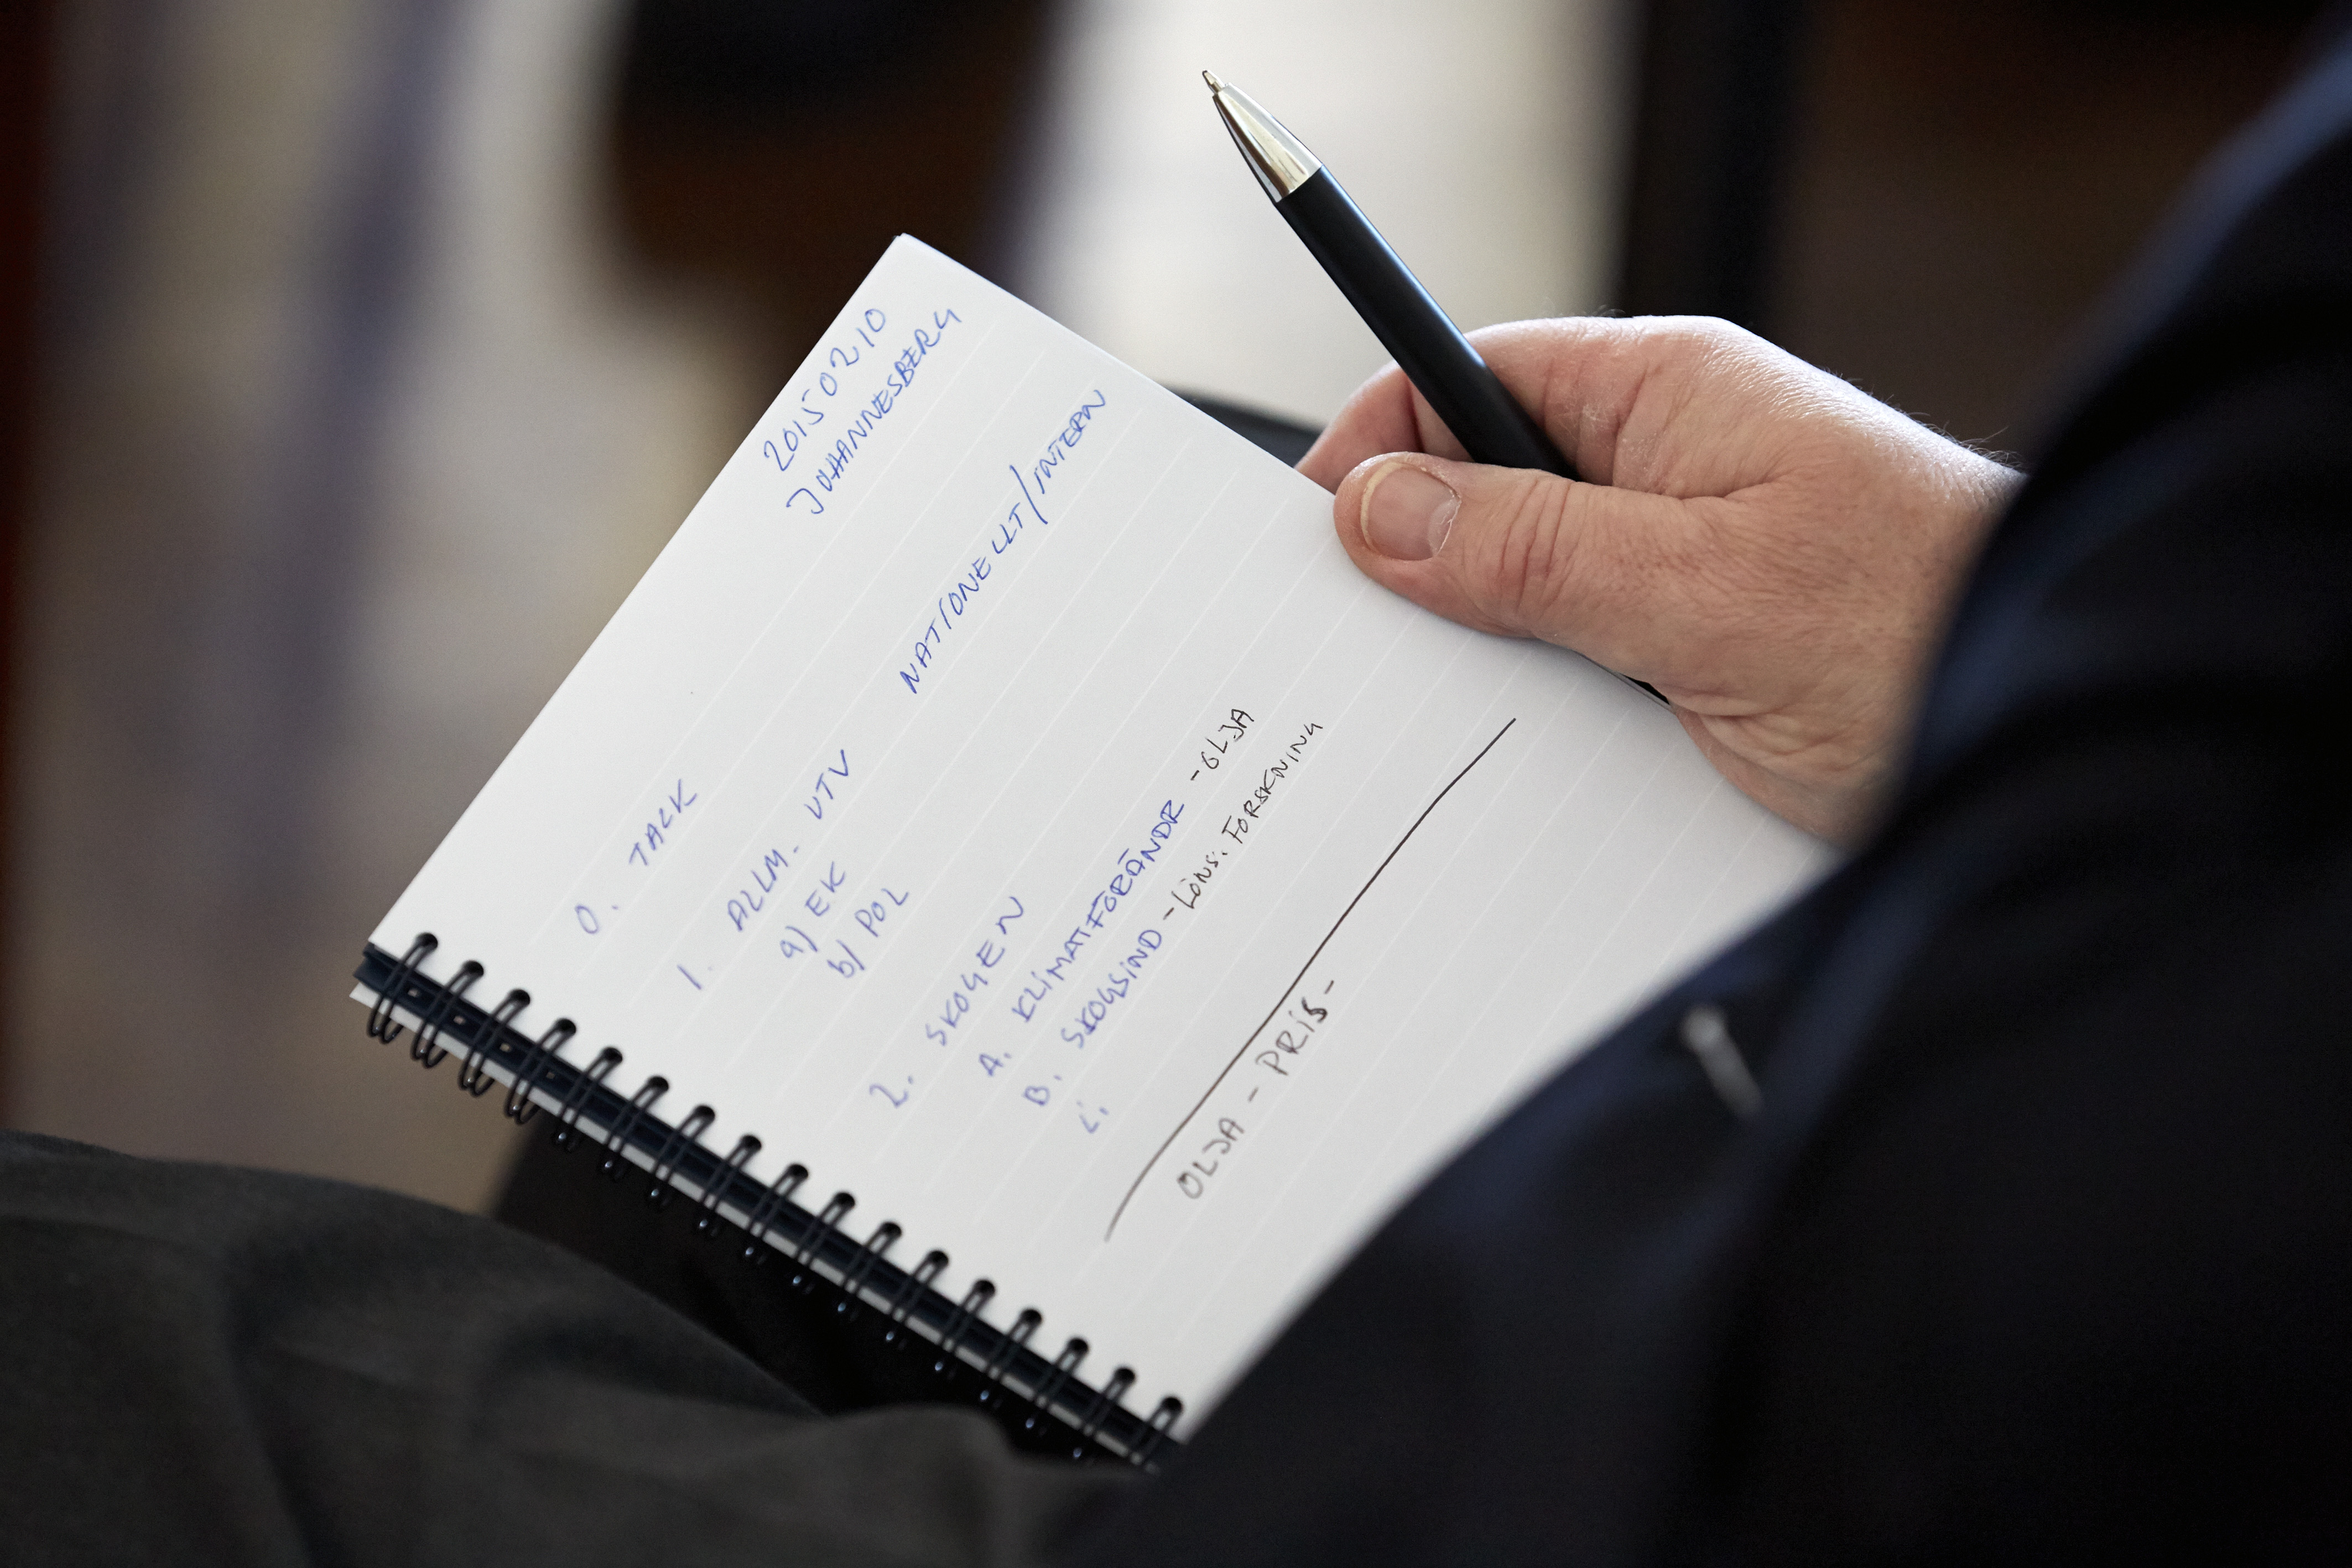 20150210
JOHANNESBERG
NATIONELLT/INTERN
0. TALK
1. ALLM. UTV
a) EK
b) POL
2. SKOGEN
A. KLIMATFÖRÄNDR - OLJA
B. SKOGSIND - LÖNS. FORSKNING
C.
OLJA - PRIS -